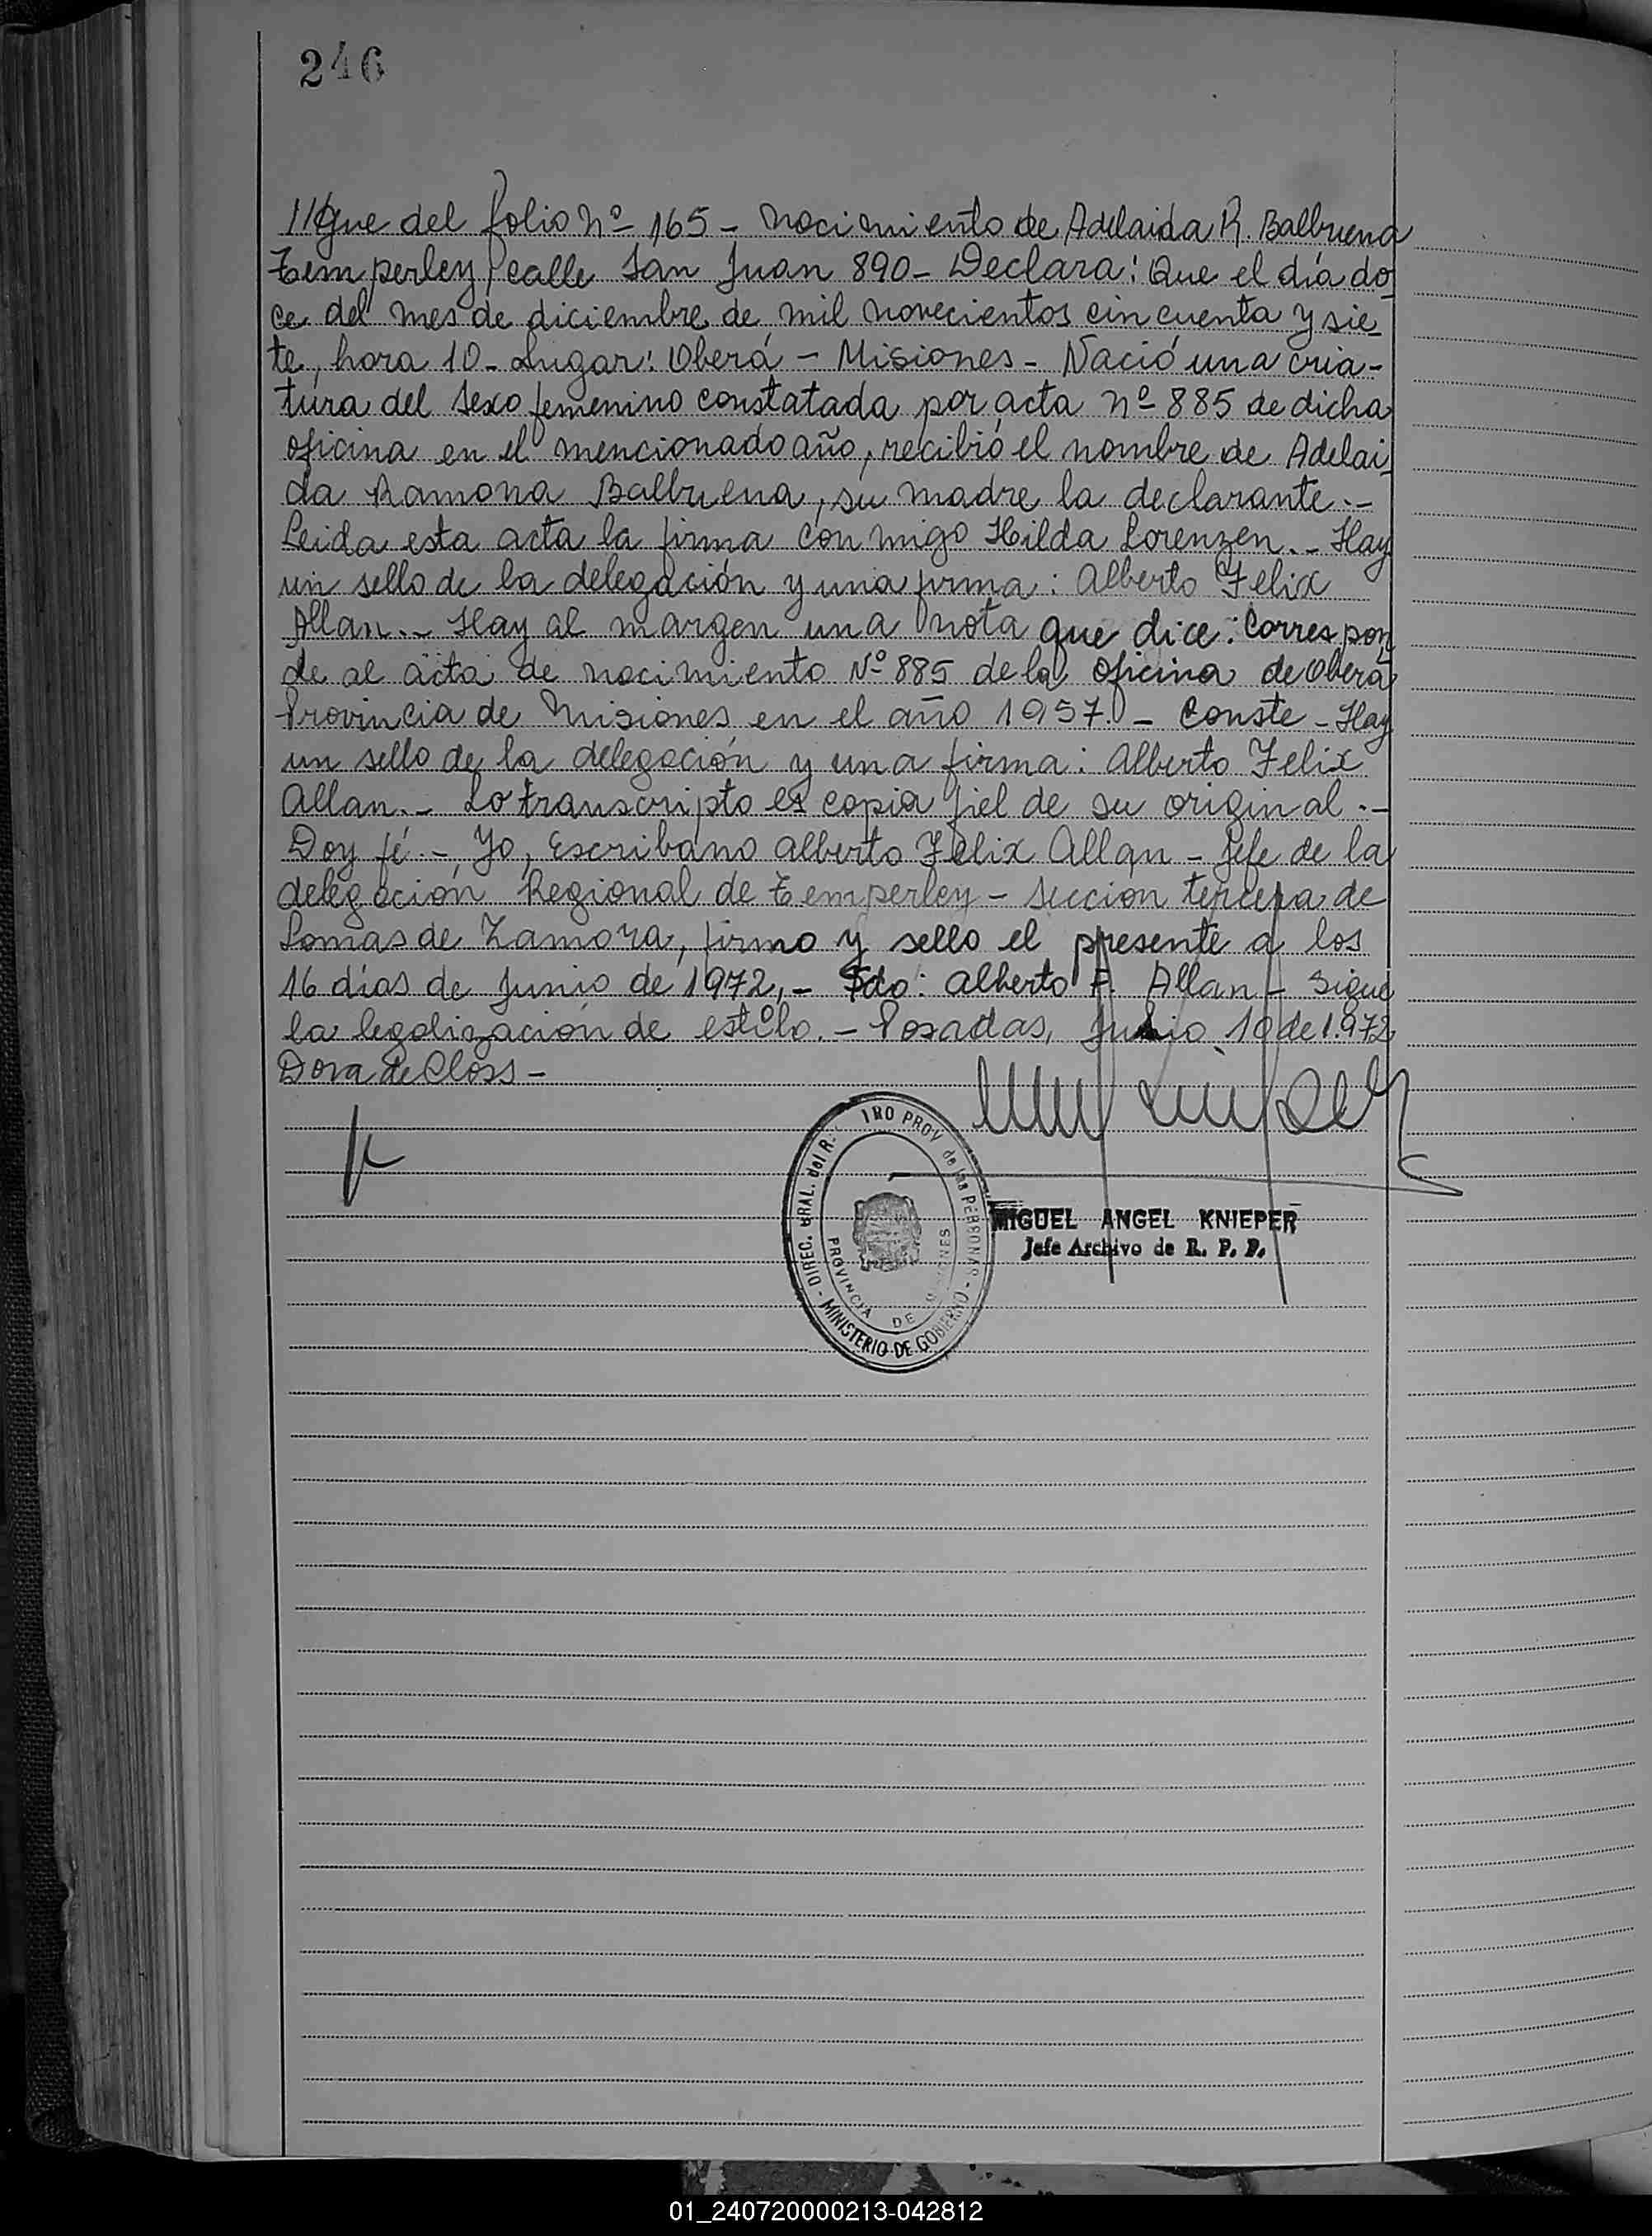 246
//gue del folio Nº 165 - Nacimiento de Adelaida R. Balbuena
Temperley, calle San Juan 890 - Declara: Que el día do
ce del mes de diciembre de mil novecientos cincuenta y sie
te, hora 10 - Lugar: Oberá - Misiones - Nació una cria-
tura del sexo femenino constatada por acta nº 885 de dicha
oficina en el mencionado año, recibió el nombre de Adelai
da Ramona Balbuena, su madre la declarante.-
Leida esta acta la firma conmigo Hilda Lorenzen.- Hay
un sello de la delegación y una firma: Alberto Felix
Allan.- Hay al margen una nota que dice: Correspon
de al acta de nacimiento Nº 885 de la oficina de Oberá
Provincia de Misiones en el año 1957.- Conste - Hay
un sello de la delegación y una firma: Alberto Felix
Allan.- Lo transcripto es copia fiel de su original.-
Doy fé.- Yo, Escribano Alberto Felix Allan - Jefe de la
delegación Regional de Temperley - Sección tercera de
Lomas de Zamora, firmo y sello el presente a los
16 días de Junio de 1972,- Fdo: Alberto F. Allan - Sigue
la legalización de estilo.- Posadas, Julio 10 de 1.972
Dora de Closs -
DIREC. GRAL. del R. PROV de las PERSONAS
PROVINCIA DE MISIONES
MINISTERIO DE GOBIERNO
MIGUEL ANGEL KNIEPER
Jefe Archivo de R. P. P.
01_240720000213-042812